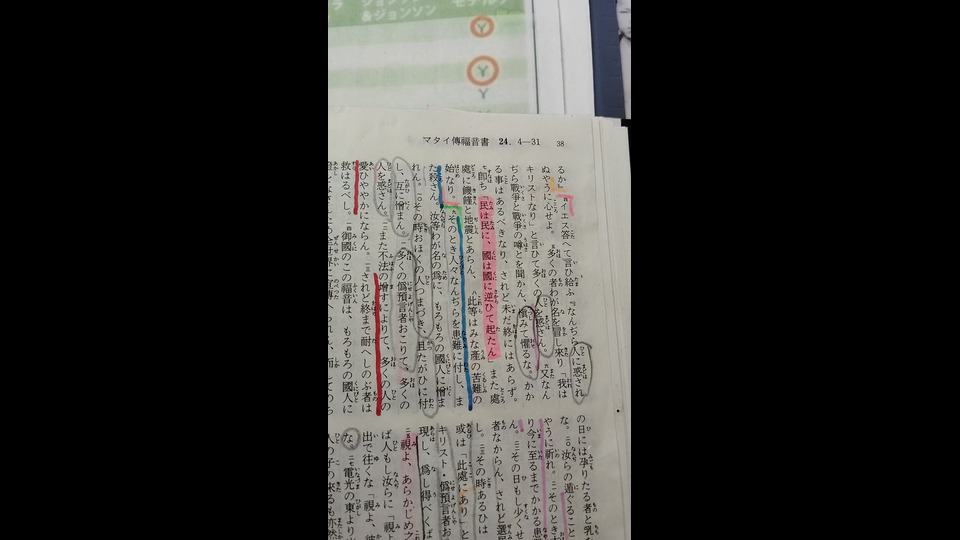 ジョンソン
&ジョンソン
モデルナ
Y
Y
Y
マタイ傳福音書 24. 4―31 38
るか』 四イエス答へて言ひ給ふ『なんぢら人に惑され
ぬやうに心せよ。 五多くの者わが名を冒し來り「我は
キリストなり」と言ひて多くの人を惑さん。 六又なん
ぢら戰爭と戰爭の噂とを聞かん、愼みて懼るな。かか
る事はあるべきなり、されど未だ終にはあらず。
七即ち「民は民に、國は國に逆ひて起たん」また處
處に饑饉と地震とあらん、 八此等はみな產の苦難の
始なり。 九そのとき人々なんぢらを患難に付し、ま
た殺さん。汝等わが名の爲に、もろもろの國人に憎ま
れん。 一〇その時おほくの人つまづき、且たがひに付
し、互に憎まん。 一一多くの僞預言者おこりて、多くの
人を惑さん。 一二また不法の增すによりて、多くの人の
愛ひややかにならん。 一三されど終まで耐へしのぶ者は
救はるべし。 一四御國のこの福音は、もろもろの國人に
の日には孕りたる者と乳を
な。 二〇汝らの遁ぐること
やうに祈れ。 二一そのとき
り今に至るまでかかる患
ん。 二二その日もし少くせ
者なからん、されど選民
し。 二三その時あるひは
或は「此處にあり」と
キリスト・僞預言者お
現し、爲し得べくば
二五視よ、あらかじめ之
ば人もし汝らに「視よ
出で往くな「視よ、彼
な。 二七電光の東より
人の子の來るも亦然